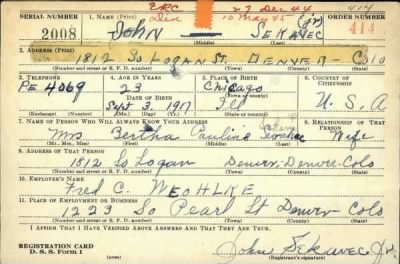 ERC 27 Dec. 44 414
SERIAL NUMBER 1. NAME (Print) Dis 10 May 45 (Jr) ORDER NUMBER
2008 JOHN SEKAVEC 414
(First) (Middle) (Last)
2. ADDRESS (Print)
1812 So LOGAN St DENVER - Colo
(Number and street or R. F. D. number) (Town) (County) (State)
3. TELEPHONE 4. AGE IN YEARS 5. PLACE OF BIRTH 6. COUNTRY OF CITIZENSHIP
PE 4069 23 Chicago
DATE OF BIRTH (Town or county)
Sept 3. 1917 Ill U. S. A
(Exchange) (Number) (Mo.) (Day) (Yr.) (State or country)
7. NAME OF PERSON WHO WILL ALWAYS KNOW YOUR ADDRESS 8. RELATIONSHIP OF THAT PERSON
Mrs Bertha Pauline Wife
(Mr., Mrs., Miss) (First) (Middle) (Last)
9. ADDRESS OF THAT PERSON
1812 So Logan Denver, Denver Colo
(Number and street or R. F. D. number) (Town) (County) (State)
10. EMPLOYER'S NAME
Fred C. WEOHLKE
11. PLACE OF EMPLOYMENT OR BUSINESS
1223 So Pearl St Denver Colo
(Number and street or R. F. D. number) (Town) (County) (State)
I AFFIRM THAT I HAVE VERIFIED ABOVE ANSWERS AND THAT THEY ARE TRUE.
REGISTRATION CARD
D. S. S. Form 1 John Sekavec Jr.